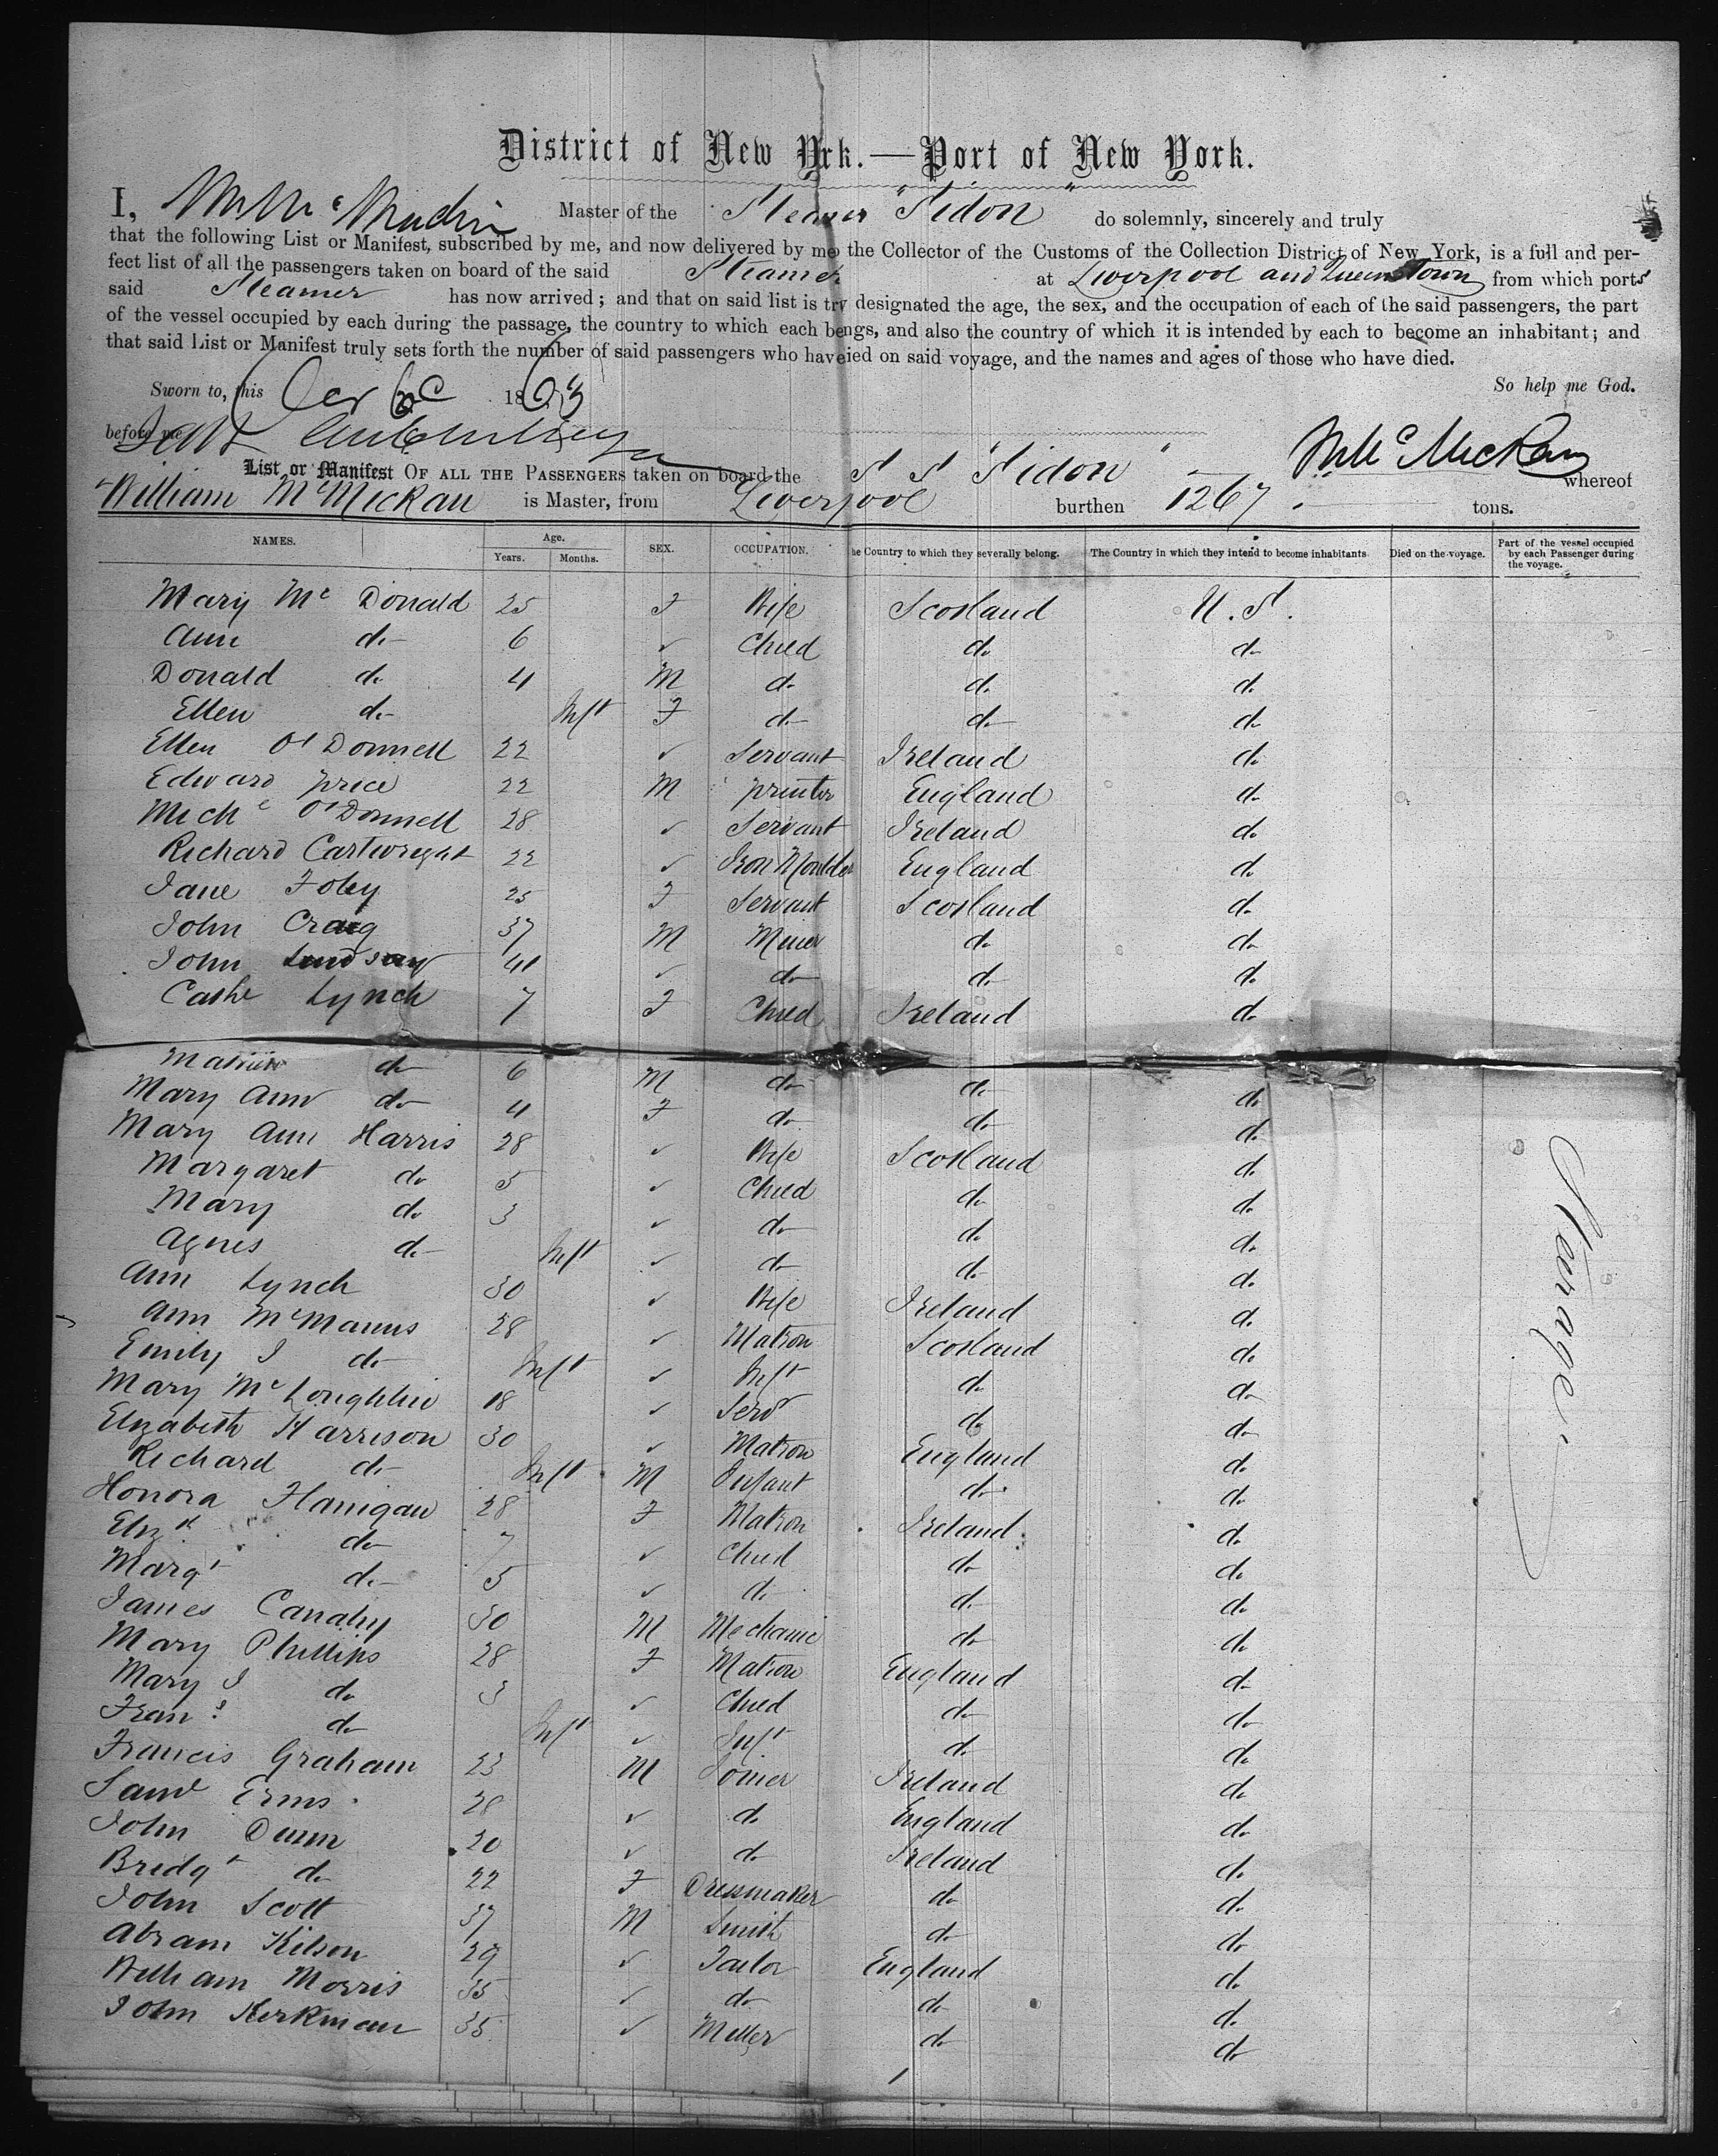 District of New Yrk.—Port of New York.
I, Wm Mc Master of the Steamer "Sidon" do solemnly, sincerely and truly
that the following List or Manifest, subscribed by me, and now delivered by me the Collector of the Customs of the Collection District of New York, is a full and per-
fect list of all the passengers taken on board of the said Steamer at Liverpool and Queenstown from which ports
said Steamer has now arrived; and that on said list is try designated the age, the sex, and the occupation of each of the said passengers, the part
of the vessel occupied by each during the passage, the country to which each bengs, and also the country of which it is intended by each to become an inhabitant; and
that said List or Manifest truly sets forth the number of said passengers who haveied on said voyage, and the names and ages of those who have died.
Sworn to, this 1863 So help me God.
before me
Wm Mc Mickan
List or Manifest OF ALL THE PASSENGERS taken on board the S S "Sidon" whereof
William McMickan is Master, from Liverpool burthen 1267 tons.
NAMES. Age. Years. Months. SEX. OCCUPATION. he Country to which they severally belong. The Country in which they intend to become inhabitants Died on the voyage. Part of the vessel occupied by each Passenger during the voyage.
Mary Mc Donald 25 F Wife Scotland U.S.
Ann do 6 ✓ Child do do
Donald do 4 M do do do
Ellen do Inft F do do do
Ellen O'Donnell 22 ✓ Servant Ireland do
Edward Price 22 M printer England do
Michl O'Donnell 28 ✓ Servant Ireland do
Richard Cartwright 22 ✓ Iron Moulder England do
Jane Foley 25 F Servant Scotland do
John Craig 37 M Miner do do
John Lindsay 41 ✓ do do do
Cathe Lynch 7 F Child Ireland do
Mathew do 6 M do do do
Mary Ann do 4 F do do do
Mary Ann Harris 28 ✓ Wife Scotland do
Margaret do 5 ✓ Child do do
Mary do 3 ✓ do do do
Agnes do Inft ✓ do do do
Ann Lynch 30 ✓ Wife Ireland do
Ann McManus 28 ✓ Matron Scotland do
Emily J do Inft ✓ Inft do do
Mary McLoughlin 18 ✓ Servt do do
Elizabeth Harrison 30 ✓ Matron England do
Richard do Inft M Infant do do
Honora Flanigan 28 F Matron Ireland do
Elizth do 7 ✓ Child do do
Margt do 5 ✓ do do do
James Canahy 30 M Mechanic do do
Mary Phillips 28 F Matron England do
Mary J do 3 ✓ Child do do
Frans do Inft ✓ Inft do do
Francis Graham 23 M Joiner Ireland do
Saml Erms 28 ✓ do England do
John Dunn 20 ✓ do Ireland do
Bridgt do 22 F Dressmaker do do
John Scott 37 M Smith do do
Abram Kilson 29 ✓ Tailor England do
William Morris 35 ✓ do do do
John Kerkman 35 ✓ Miller do do
Steirage